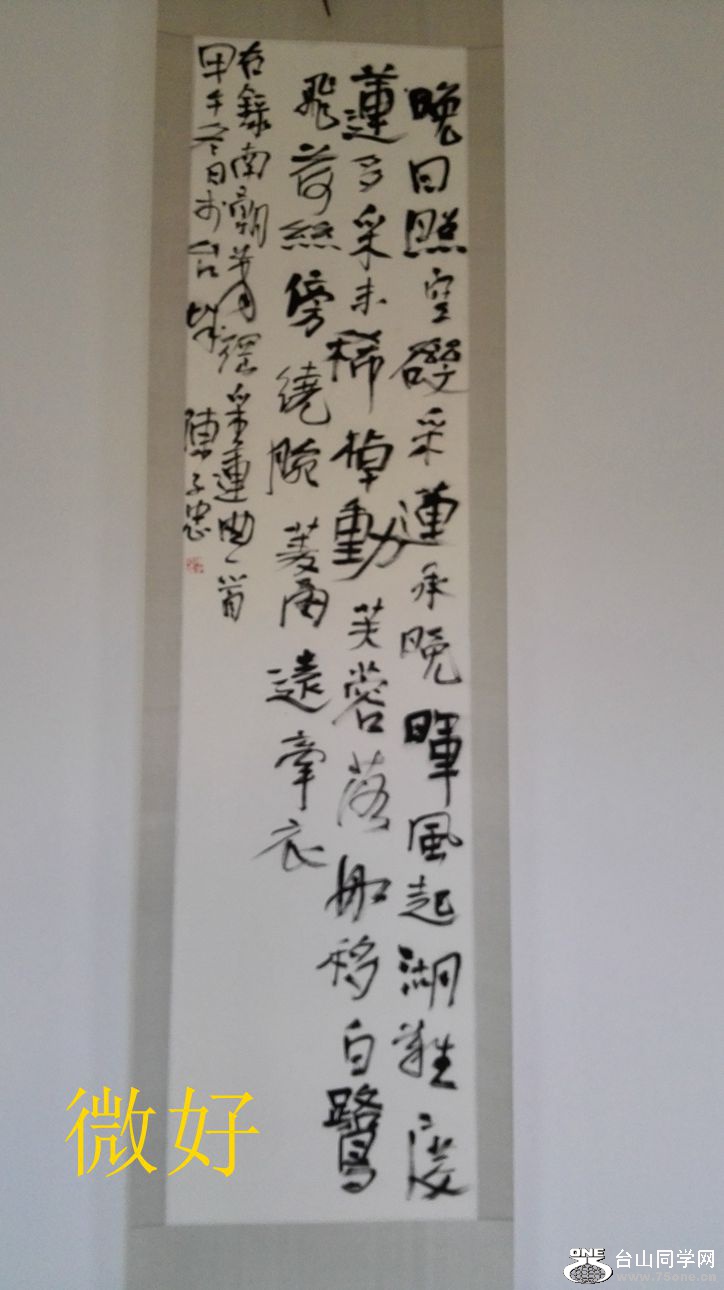 晚日照空磯采蓮承晚暉風起湖難度
蓮多采未稀棹動芙蓉落船移白鷺
飛荷絲傍繞腕菱角遠牽衣
右錄南朝蕭綱采蓮曲一首
甲午冬日於台 陳子忠
微好
ONE 台山同学网
www.75one.cn